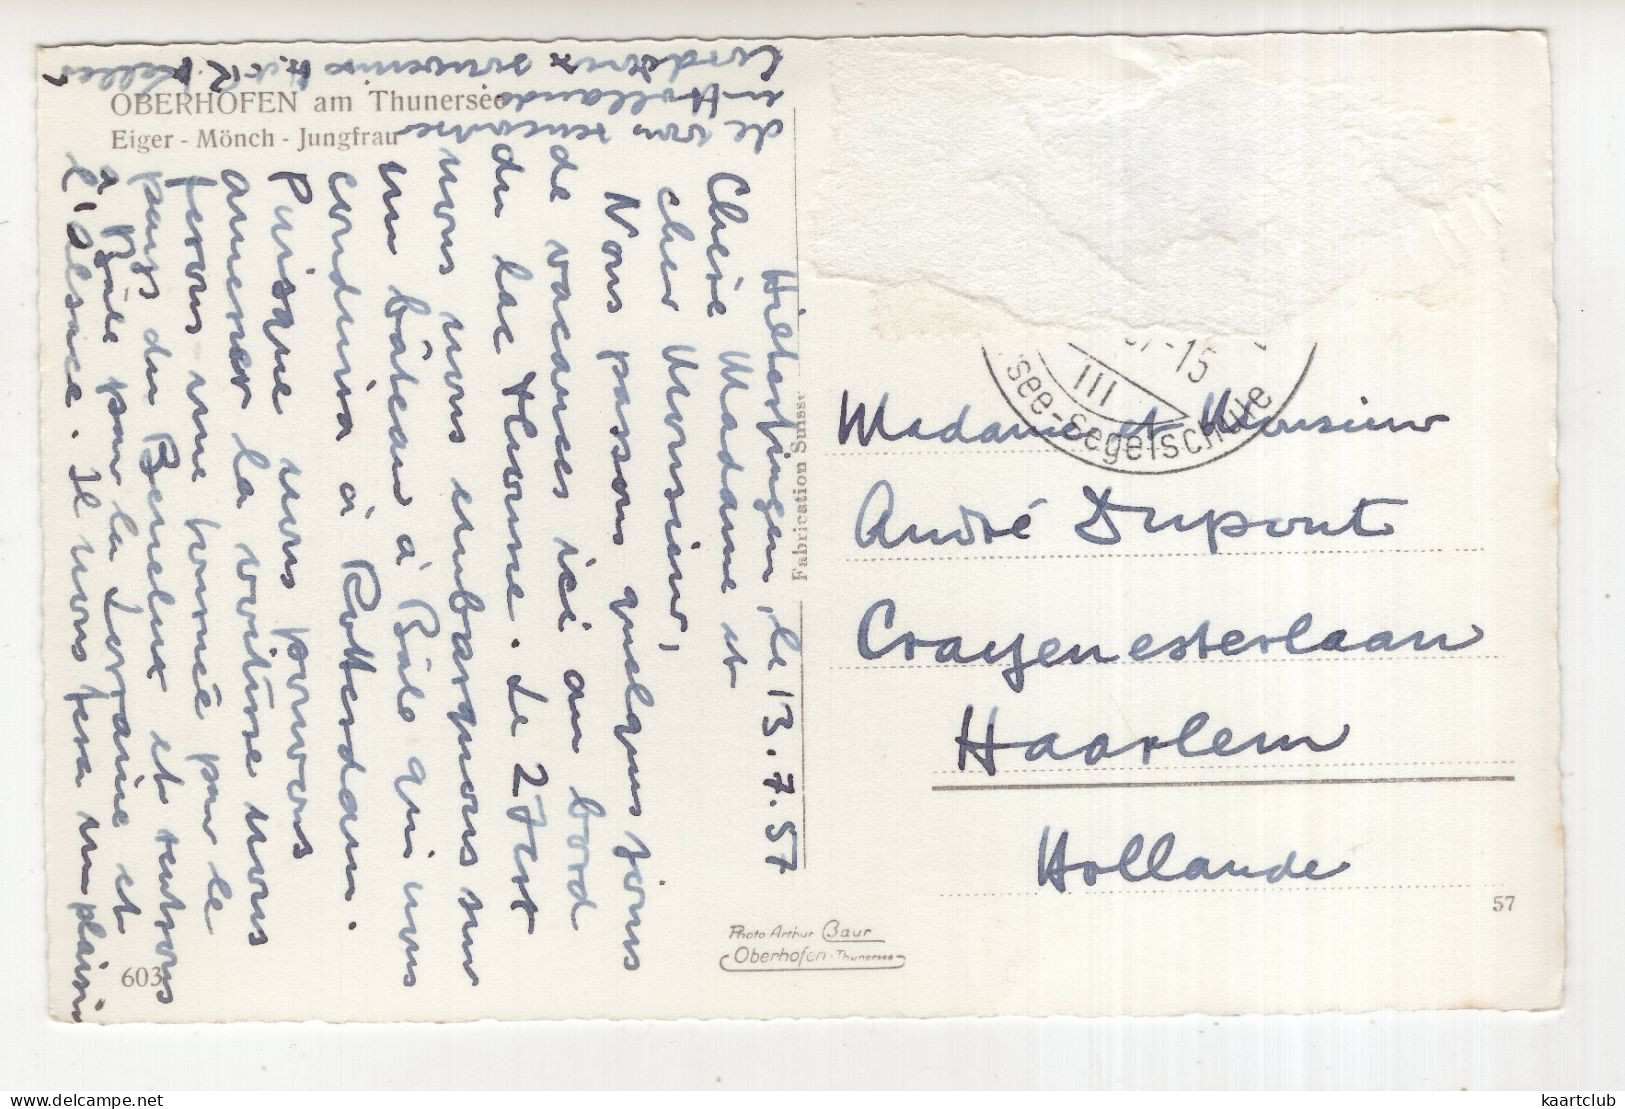 OBERHOFEN am Thunersee
Eiger - Mönch - Jungfrau
Hilterfingen, le 13.7.57
Chère Madame et
cher Monsieur,
Nous passons quelques jours
de vacances ici au bord
du lac de Thoune. Le 27
nous nous embarquons sur
un bâteau à Bâle qui nous
conduira à Rotterdam.
Puisque nous pouvons
amener la voiture nous
ferons une tournée par le
pays du Benelux et rentrons
à Bâle par la Lorraine et
l'Alsace. Il nous fera un plaisir
de vous rencontrer
en Hollande
souvenirs H. et R. Keller
Fabrication Suisse
III
-15
see-Segelschule
Madame et Monsieur
André Dupont
Crayenesterlaan
Haarlem
Hollande
57
Photo Arthur Baur
Oberhofen-Thunersee
603
kaartclub